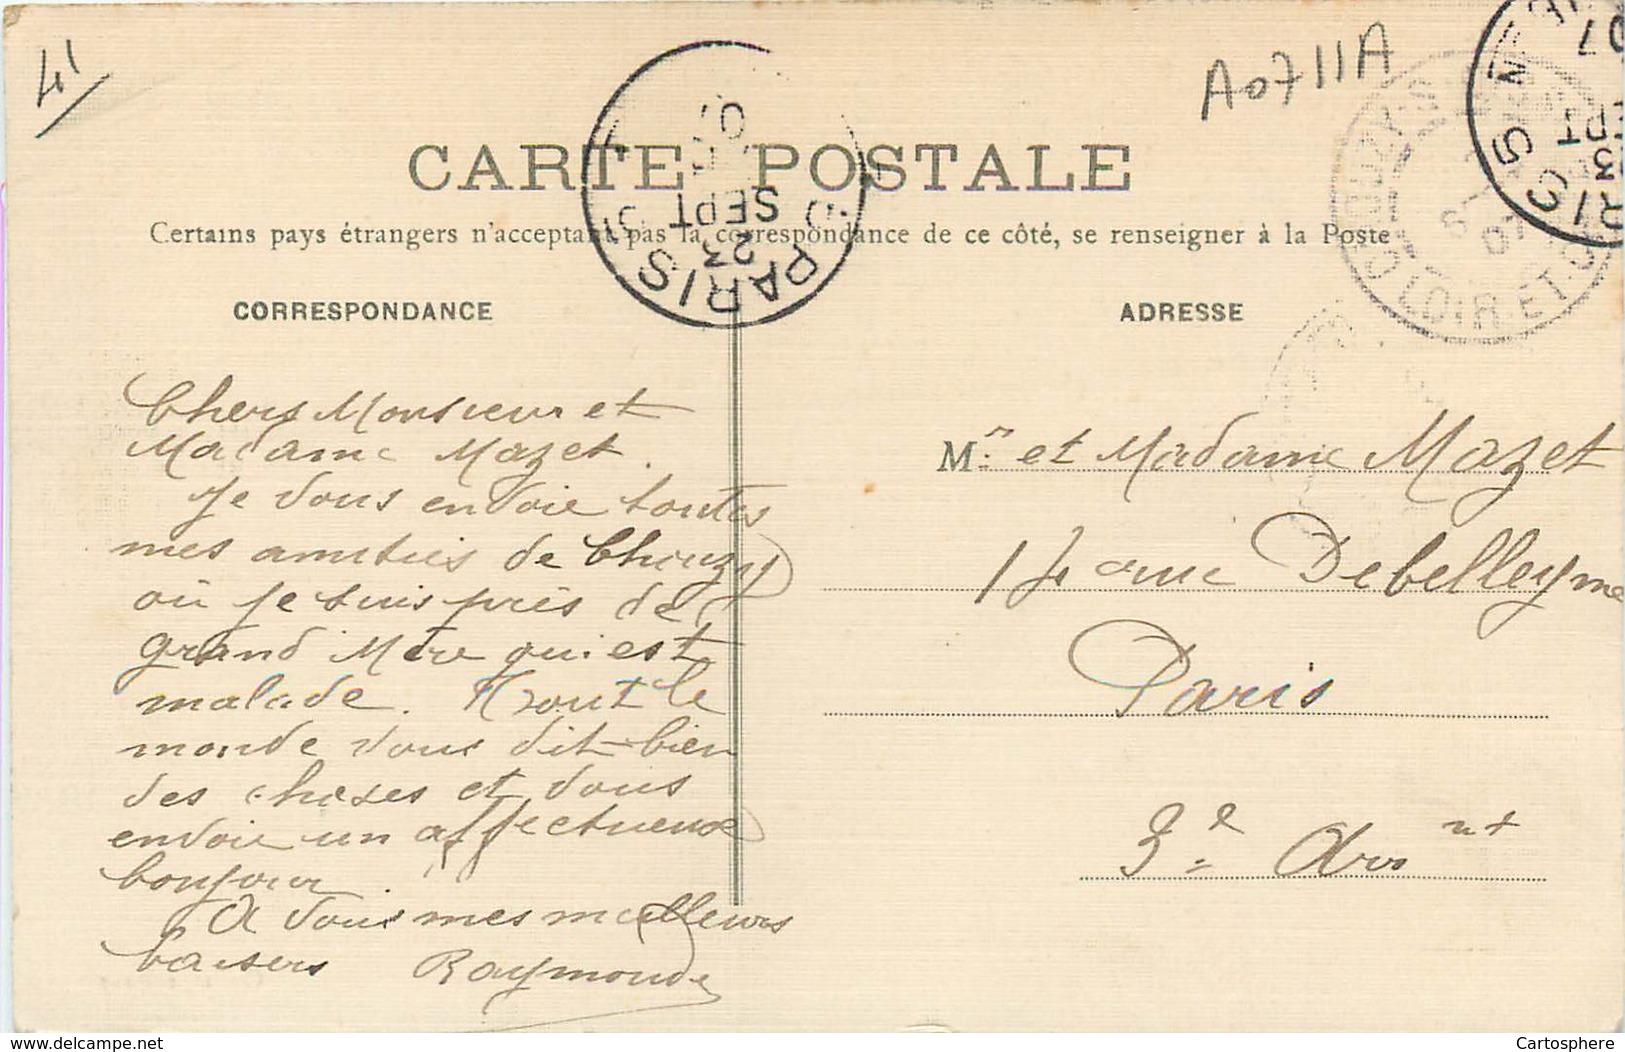 41
A0711A
CARTE POSTALE
Certains pays étrangers n'acceptant pas la correspondance de ce côté, se renseigner à la Poste
CORRESPONDANCE
Chers Monsieur et
Madame Mazet.
Je vous envoie toutes
mes amitiés de Chouzy
où je suis près de
grand Mère qui est
malade. Tout le
monde vous dit bien
des choses et vous
envoie un affectueux
bonjour.
A vous mes meilleurs
baisers Raymonde
ADRESSE
Mr et Madame Mazet
14 rue Debelleyme
Paris
3e Arrnt
PARIS
23
SEPT
07
LOIR-ET-
www.delcampe.net
Cartosphere